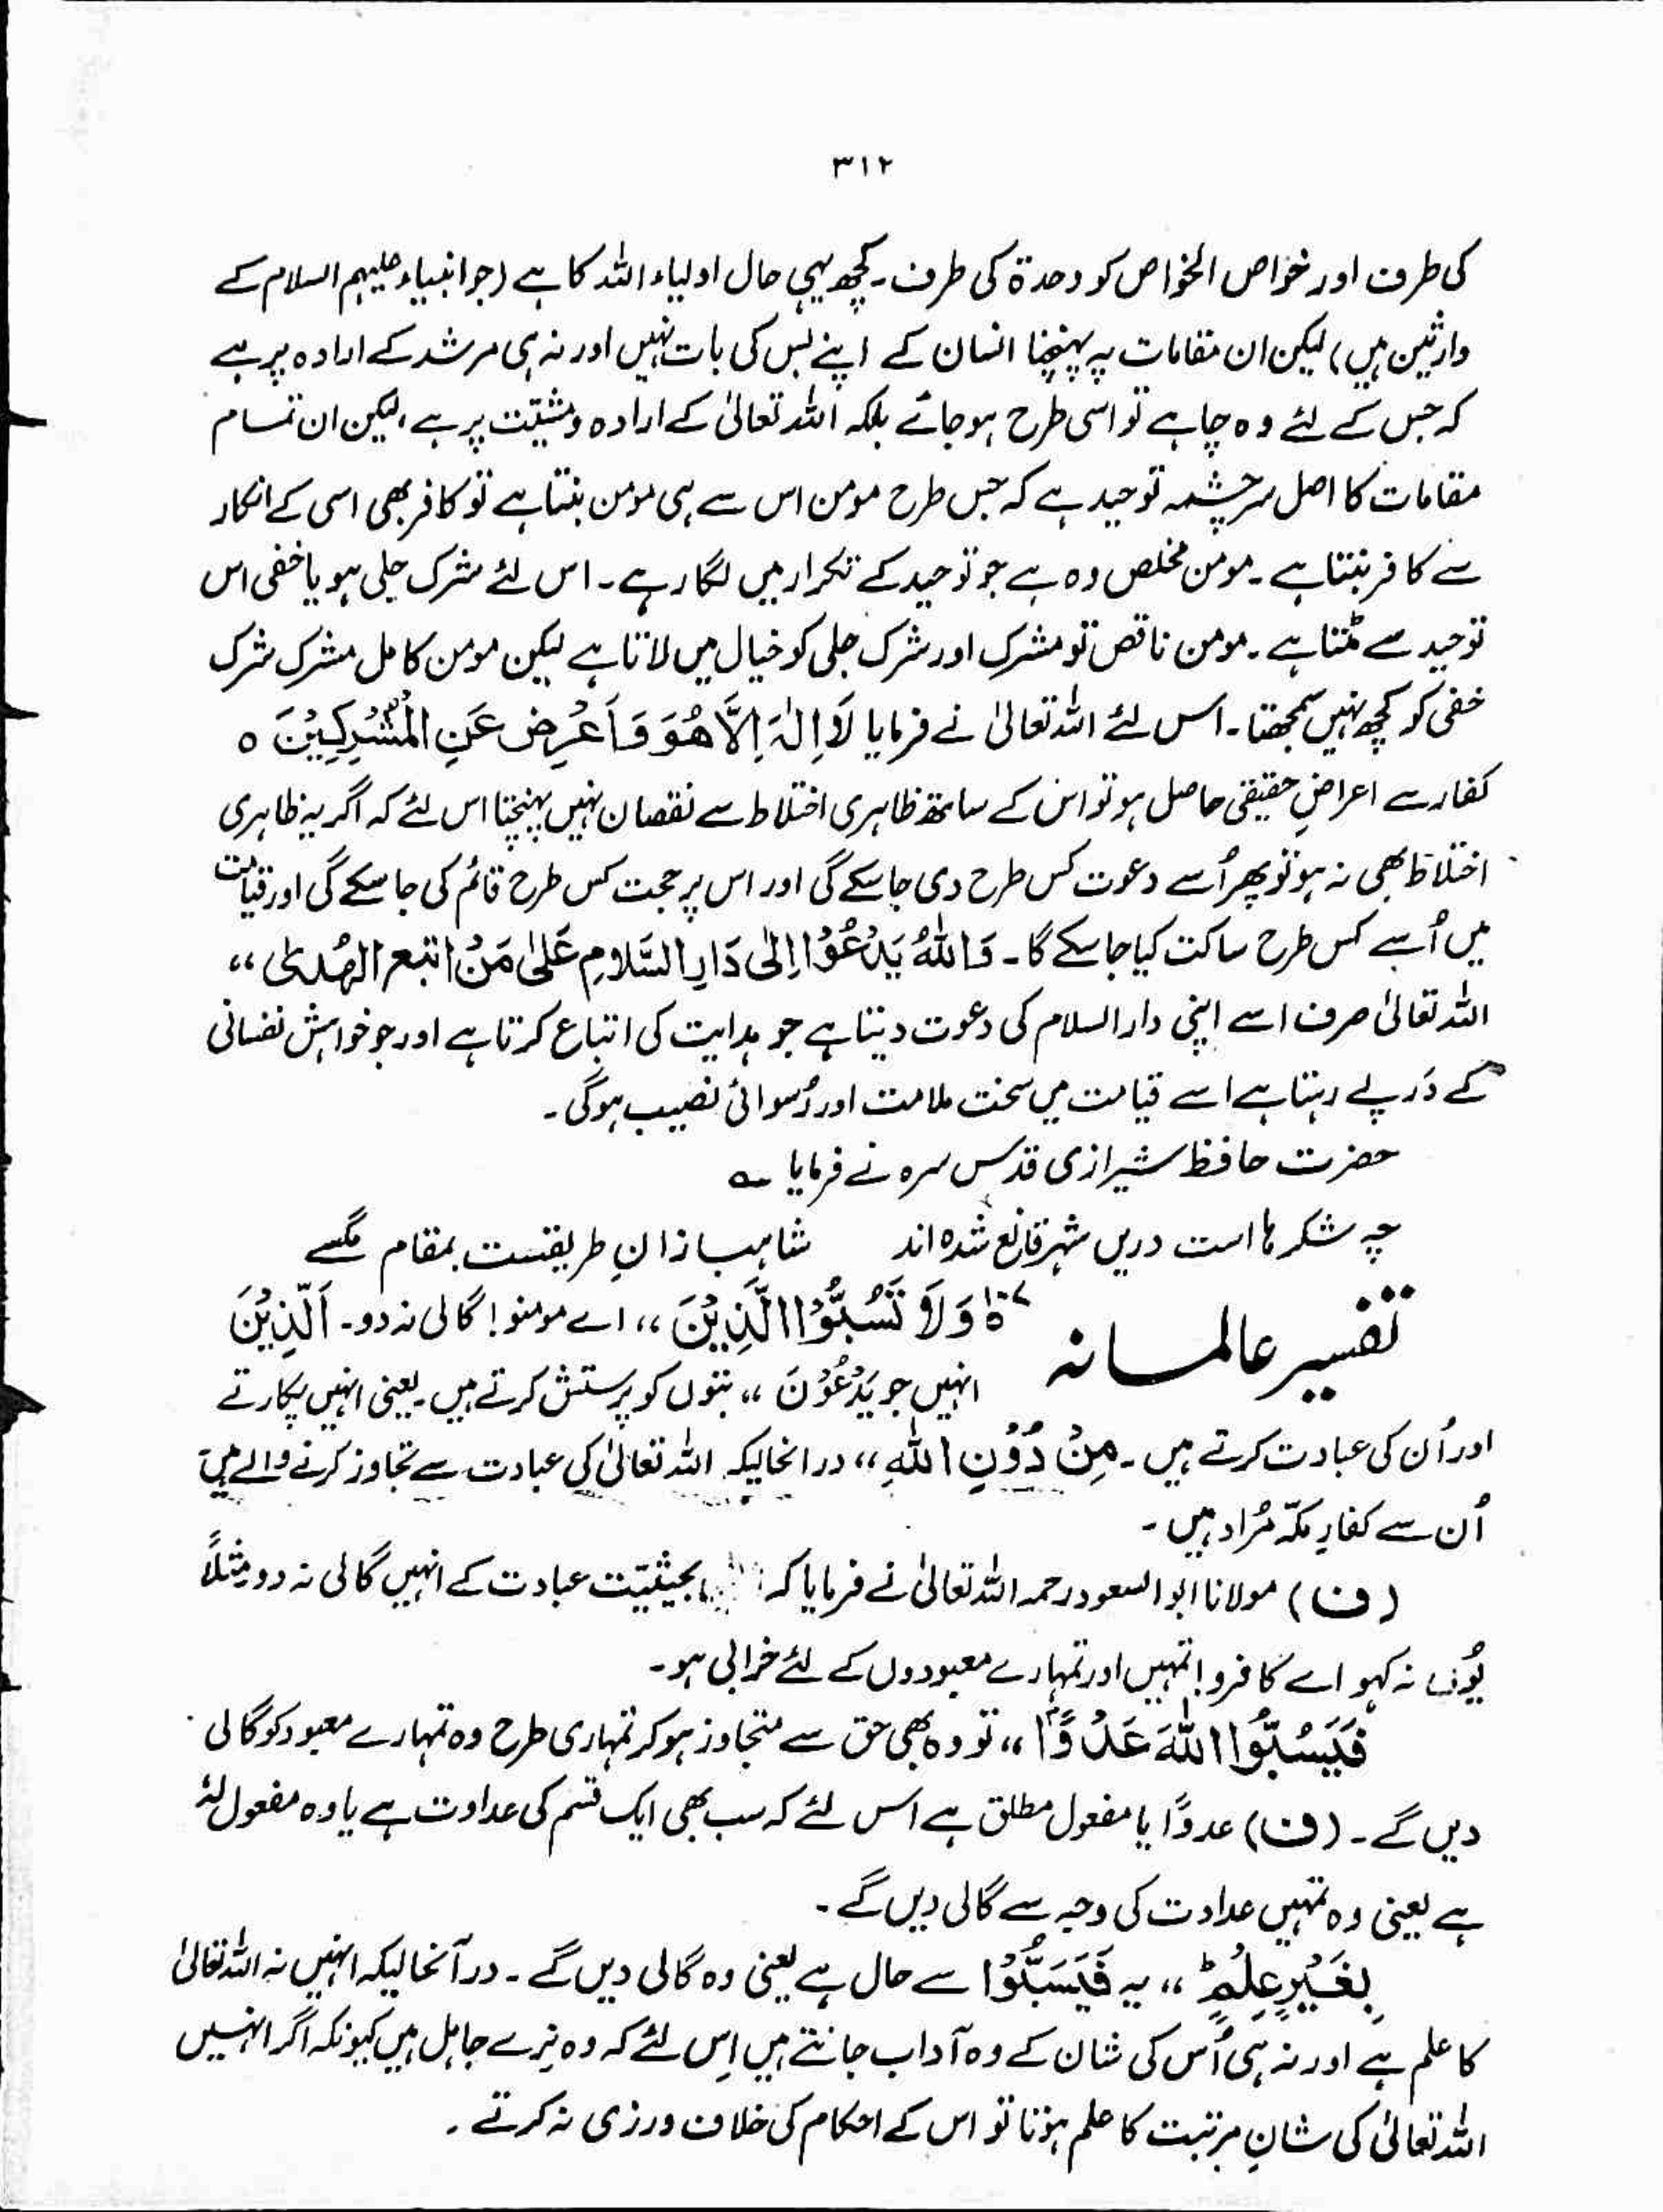 ۳۱۲
کی طرف اور خواص الخواص کو وحدۃ کی طرف۔ کچھ یہی حال اولیاء اللہ کا ہے (جو انبیاء علیہم السلام کے
وارثین ہیں) لیکن ان مقامات پہ پہنچنا انسان کے اپنے بس کی بات نہیں اور نہ ہی مرشد کے ارادہ پر ہے
کہ جس کے لئے وہ چاہے تو اسی طرح ہو جائے بلکہ اللہ تعالیٰ کے ارادہ و مشیّت پر ہے، لیکن ان تمام
مقامات کا اصل سرچشمہ توحید ہے کہ جس طرح مومن اس سے ہی مومن بنتا ہے تو کافر بھی اسی کے انکار
سے کافر بنتا ہے۔ مومن مخلص وہ ہے جو توحید کے تکرار میں لگا رہے۔ اس لئے شرک جلی ہو یا خفی اس
توحید سے مٹتا ہے۔ مومن ناقص تو مشرک اور شرک جلی کو خیال میں لاتا ہے لیکن مومن کامل مشرک شرک
خفی کو کچھ نہیں سمجھتا۔ اس لئے اللہ تعالیٰ نے فرمایا لَا اِلٰہَ اِلَّا ھُوَ وَاَعْرِضْ عَنِ الْمُشْرِکِیْنَ ہ
کفار سے اعراضِ حقیقی حاصل ہو تو اس کے ساتھ ظاہری اختلاط سے نقصان نہیں پہنچتا اس لئے کہ اگر یہ ظاہری
اختلاط بھی نہ ہو تو پھر اُسے دعوت کس طرح دی جا سکے گی اور اس پر حجت کس طرح قائم کی جا سکے گی اور قیامت
میں اُسے کس طرح ساکت کیا جا سکے گا۔ وَاللّٰہُ یَدْعُوْا اِلٰی دَارِ السَّلَامِ عَلٰی مَنْ اتبع الھُدیٰ ،،
اللہ تعالیٰ صرف اسے اپنی دار السلام کی دعوت دیتا ہے جو ہدایت کی اتباع کرتا ہے اور جو خواہش نفسانی
کے دَرپے رہتا ہے اسے قیامت میں سخت ملامت اور رُسوائی نصیب ہوگی۔
حضرت حافظ شیرازی قدس سرہ نے فرمایا ؎
چہ شکرہا است دریں شہر قانع شدہ اند شاہبازانِ طریقت بمقام مگسے
تفسیر عالمانہ وَلَا تَسُبُّوْا الَّذِیْنَ ،، اے مومنو! گالی نہ دو۔ اَلَّذِیْنَ
انہیں جو یَدْعُوْنَ ،، بتوں کو پرستش کرتے ہیں۔ یعنی انہیں پکارتے
اور اُن کی عبادت کرتے ہیں۔ مِنْ دُوْنِ اللّٰہِ ،، درانحالیکہ اللہ تعالیٰ کی عبادت سے تجاوز کرنے والے ہیں
اُن سے کفارِ مکہّ مُراد ہیں۔
(ف) مولانا ابو السعود رحمہ اللہ تعالیٰ نے فرمایا کہ بحیثیّت عبادت کے انہیں گالی نہ دو مثلاً
یُوں نہ کہو اے کافرو! تمہیں اور تمہارے معبودوں کے لئے خرابی ہو۔
فَیَسُبُّوا اللّٰہَ عَدْوًا ،، تو وہ بھی حق سے متجاوز ہو کر تمہاری طرح وہ تمہارے معبود کو گالی
دیں گے۔ (ف) عدوًا یا مفعول مطلق ہے اس لئے کہ سب بھی ایک قسم کی عداوت ہے یا وہ مفعول لہٗ
ہے یعنی وہ تمہیں عداوت کی وجہ سے گالی دیں گے۔
بِغَیْرِ عِلْمٍ ط ،، یہ فَیَسَبُّوْا سے حال ہے یعنی وہ گالی دیں گے۔ در آنحالیکہ انہیں نہ اللہ تعالیٰ
کا علم ہے اور نہ ہی اُس کی شان کے وہ آداب جانتے ہیں اِس لئے کہ وہ نِرے جاہل ہیں کیونکہ اگر انہیں
اللہ تعالیٰ کی شانِ مرتبت کا علم ہوتا تو اس کے احکام کی خلاف ورزی نہ کرتے۔